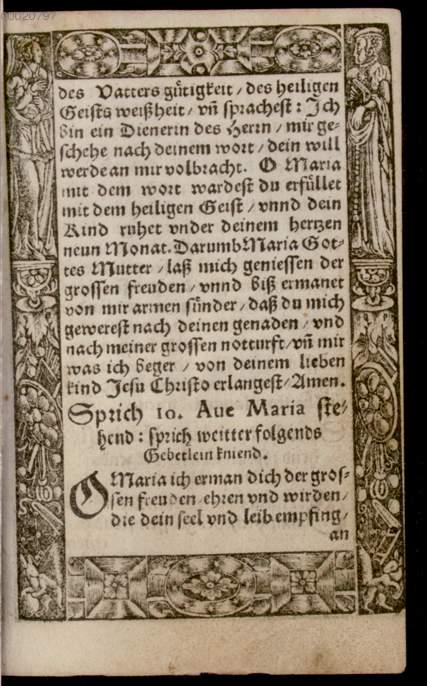 00020797
des Vatters gütigkeit / des heiligen
Geists weißheit / vñ sprachest : Ich
bin ein Dienerin des Herrn / mir ge-
schehe nach deinem wort / dein will
werde an mir volbracht. O Maria
mit dem wort wardest du erfüllet
mit dem heiligen Geist / vnnd dein
Kind ruhet vnder deinem hertzen
neun Monat. Darumb Maria Got-
tes Mutter / laß mich geniessen der
grossen freuden / vnnd biß ermanet
von mir armen sünder / daß du mich
gewerest nach deinen genaden / vnd
nach meiner grossen notturft / vñ mir
was ich beger / von deinem lieben
kind Jesu Christo erlangest / Amen.
Sprich 10. Aue Maria ste-
hend : sprich weitter folgends
Gebetlein kniend.
O Maria ich erman dich der gros-
sen freuden / ehren vnd wirden /
die dein seel vnd leib empfing /
an